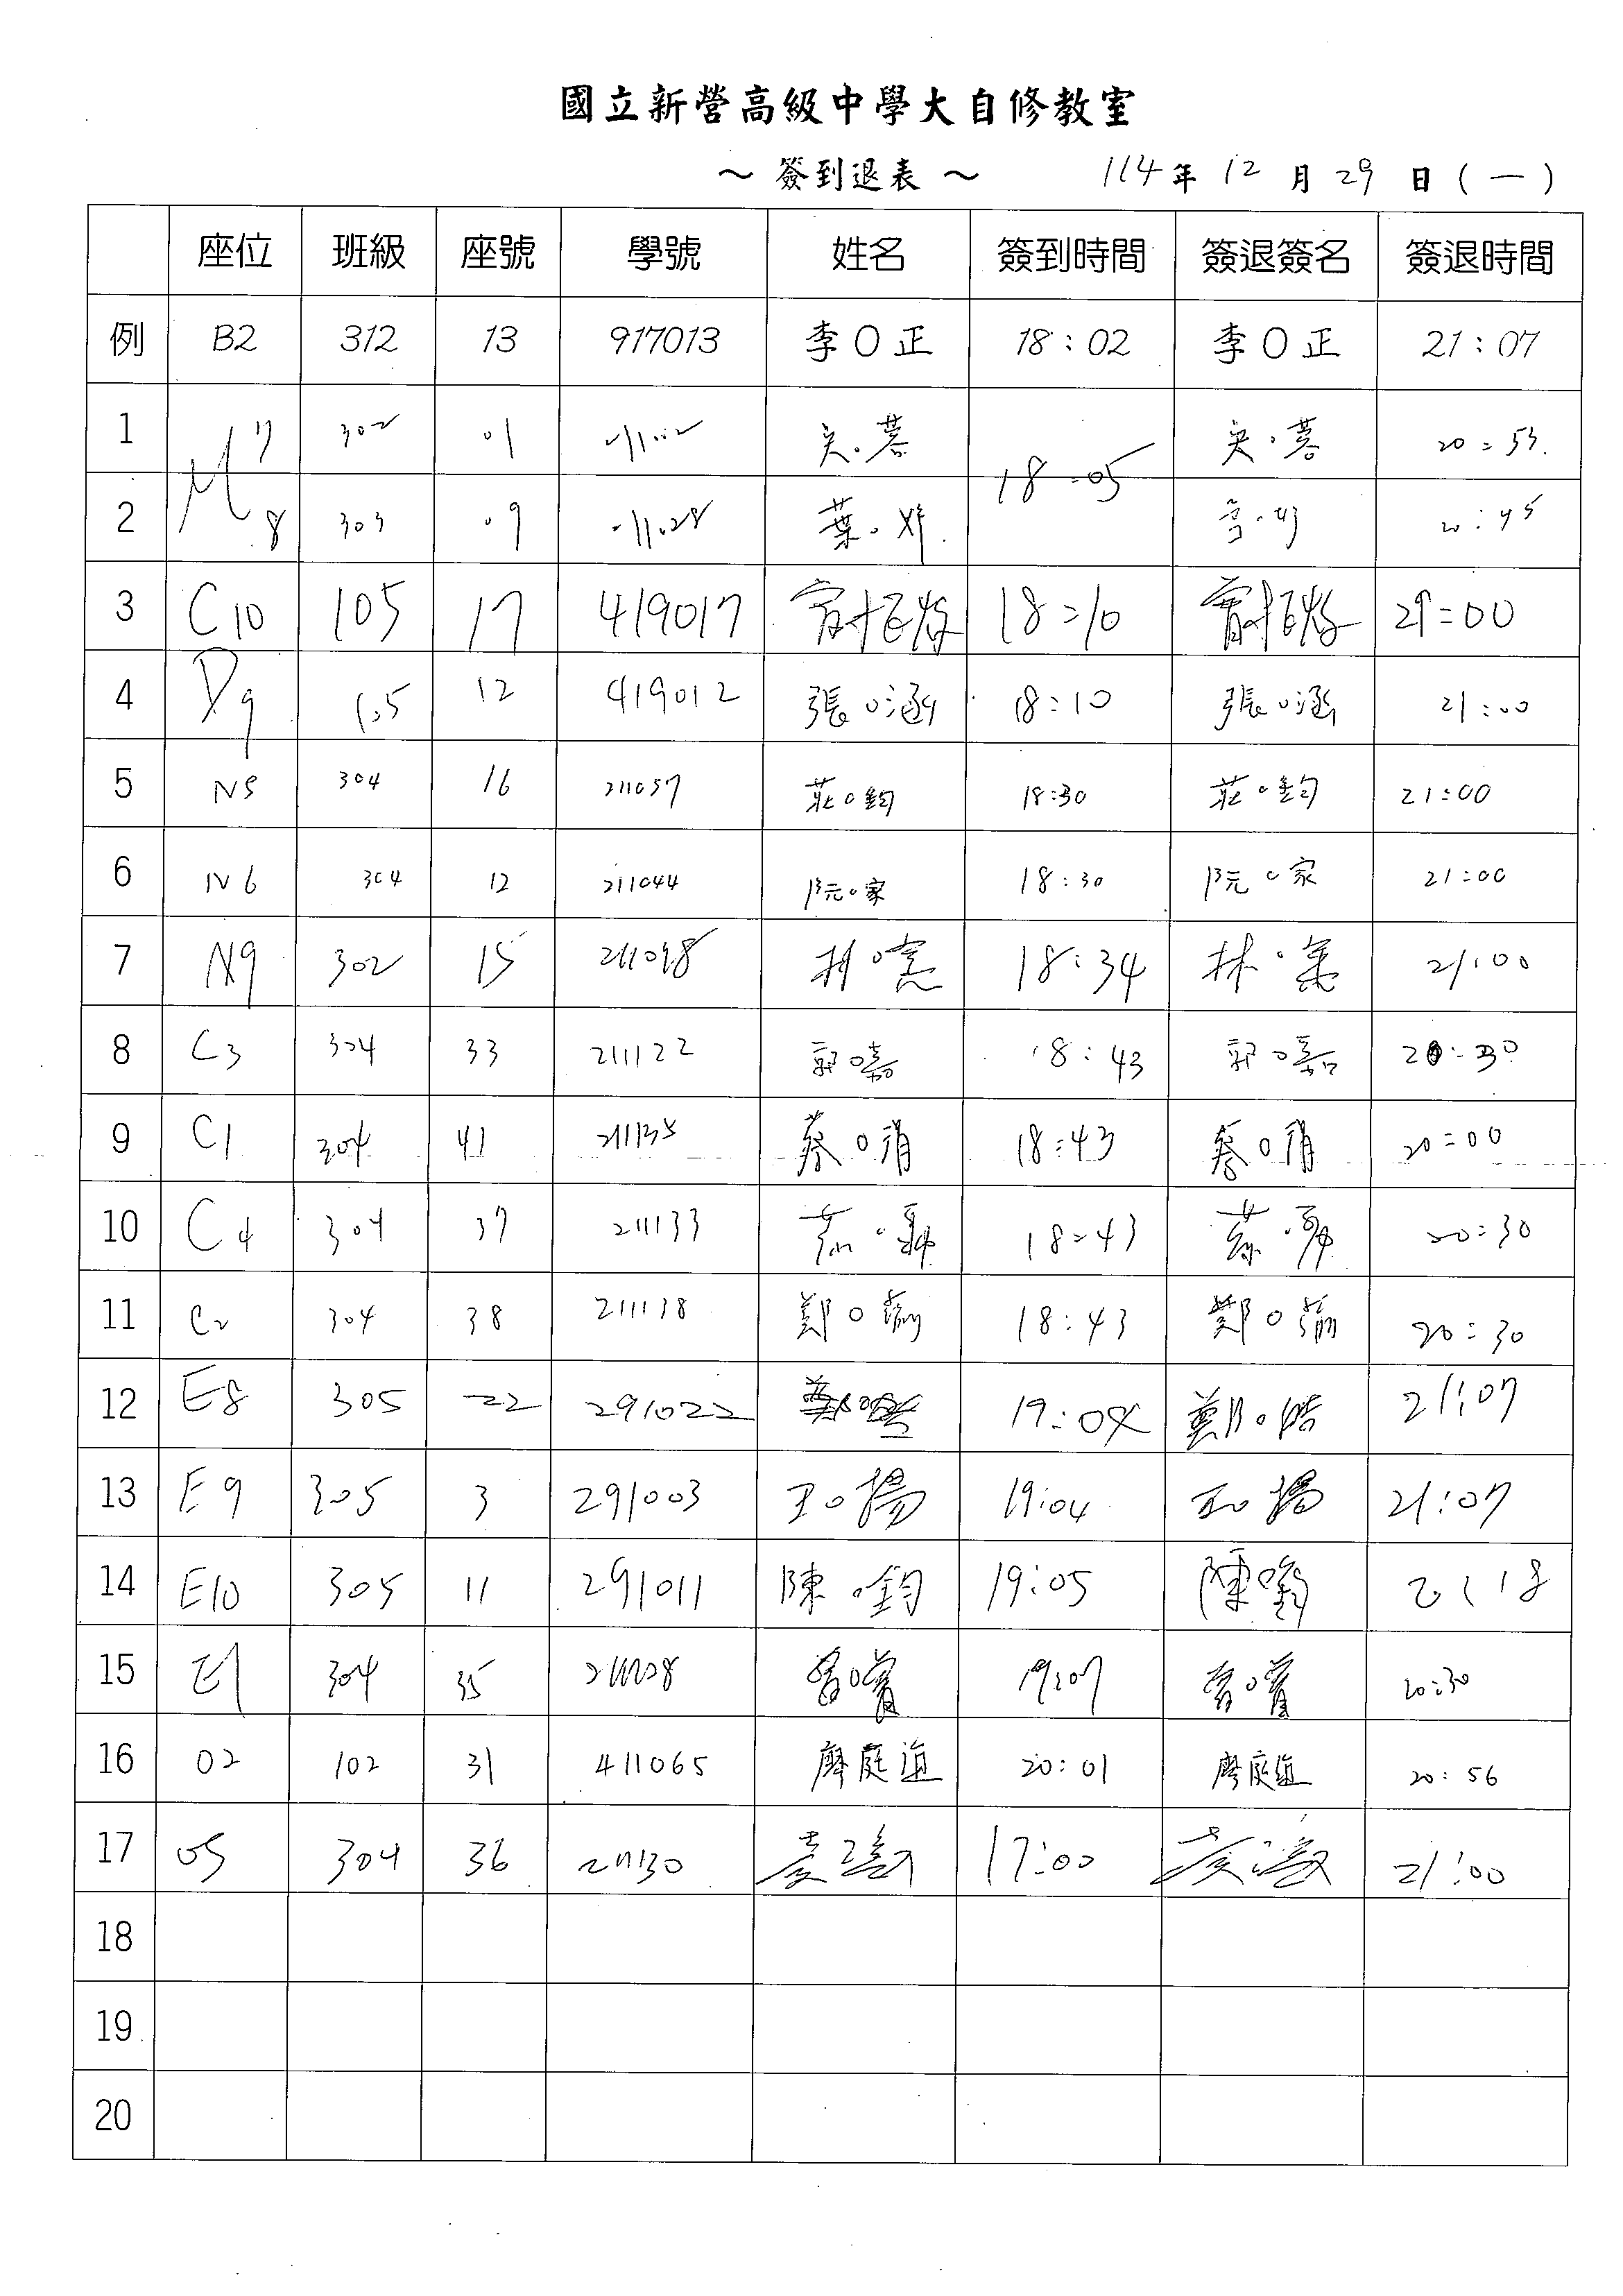 國立新營高級中學大自修教室
～ 簽到退表 ～ 114年 12 月 29 日 ( 一 )
座位 班級 座號 學號 姓名 簽到時間 簽退簽名 簽退時間
例 B2 312 13 917013 李O正 18:02 李O正 21:07
1 M7 302 01 18:05 20:53
2 8 303 09 葉 20:45
3 C10 105 17 419017 18:10 21:00
4 D9 105 12 419012 張O涵 18:10 張O涵 21:00
5 N5 304 16 211057 莊O鈞 18:30 莊O鈞 21:00
6 N6 304 12 211044 阮O家 18:30 阮O家 21:00
7 N9 302 15 林 18:34 林 21:00
8 C3 304 33 211122 郭O嘉 18:43 郭O嘉 20:30
9 C1 304 41 蔡O 18:43 蔡O 20:00
10 C4 304 37 211133 18:43 20:30
11 C2 304 38 211138 鄭O 18:43 鄭O 20:30
12 E8 305 22 291022 19:04 鄭 21:07
13 E9 305 3 291003 王O揚 19:04 王O揚 21:07
14 E10 305 11 291011 陳O鈞 19:05 陳 21 18
15 E1 304 35 曾O 19:07 曾O 20:30
16 O2 102 31 411065 廖庭 20:01 廖庭 20:56
17 O5 304 36 211130 17:00 21:00
18
19
20